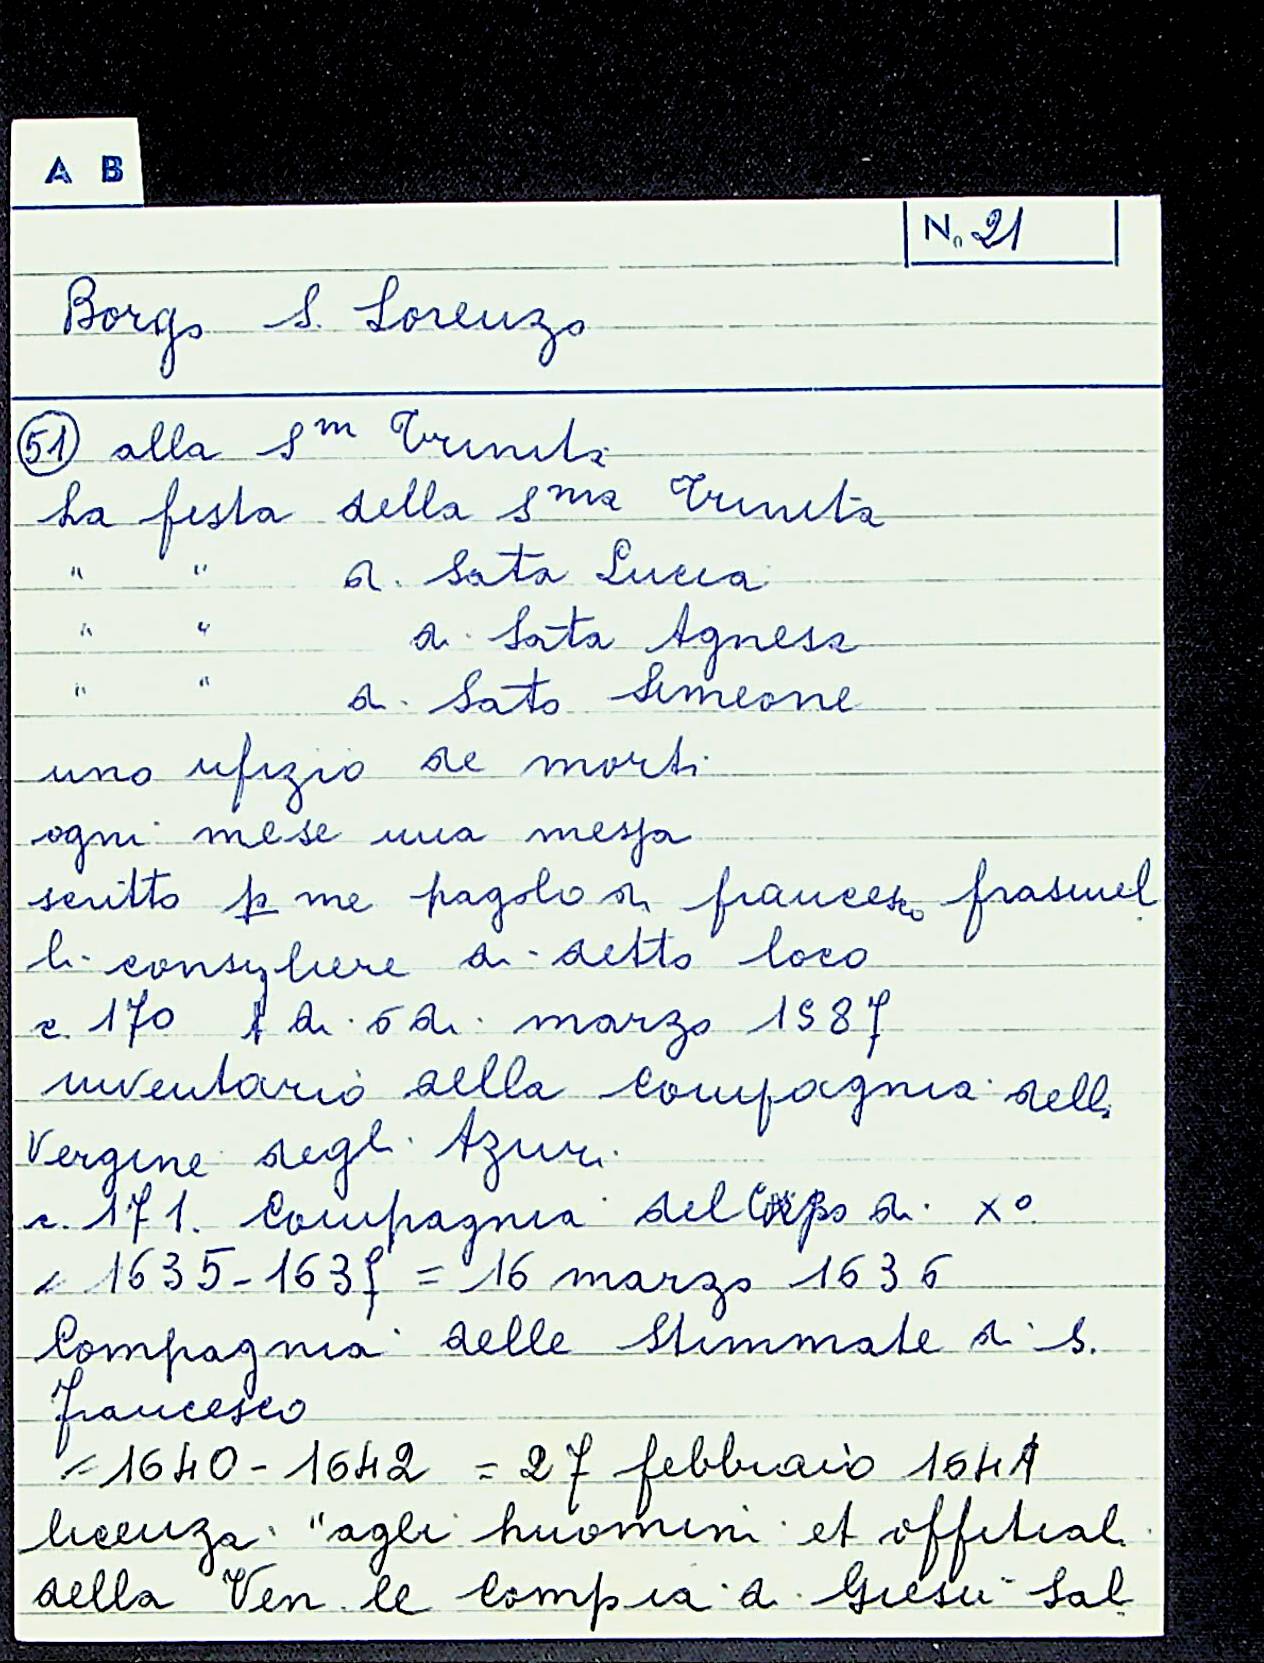 A B
N. 21
Borgo S. Lorenzo
51 alla Sm Trinità
La festa della Sma Trinità
" " di Sāta Lucia
" " di Sāta Agnesa
" " di Sāto Simeone
uno ufizio de morti
ogni mese una messa
scritto p me pagolo di francesco frasinel
li consigliere di detto loco
c. 170 A di 6 di marzo 1587
inventario della Compagnia della
Vergine degli Azuri
c. 171. Compagnia del Corpo di Xº
1635-1637 = 16 marzo 1636
Compagnia delle Stimmate di S.
francesco
= 1640-1642 = 27 febbraio 1641
licenza "agli huomini et offitiali
della Ven.le Compia di Giesù Sal